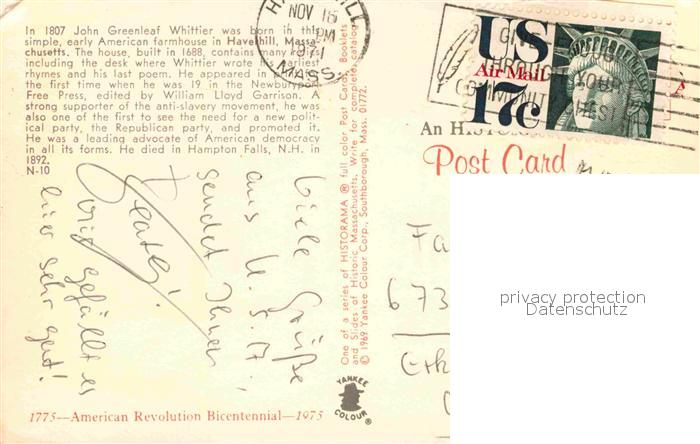 In 1807 John Greenleaf Whittier was born in this
simple, early American farmhouse in Haverhill, Massa-
chusetts. The house, built in 1688, contains many relics
including the desk where Whittier wrote his earliest
rhymes and his last poem. He appeared in print for
the first time when he was 19 in the Newburyport
Free Press, edited by William Lloyd Garrison. A
strong supporter of the anti-slavery movement, he was
also one of the first to see the need for a new poli-
tical party, the Republican party, and promoted it.
He was a leading advocate of American democracy
in all its forms. He died in Hampton Falls, N.H. in
1892.
N-10
Viele Grüße
aus U.S.A.
sendet Ihnen
mir gefällt es
hier sehr gut!
1775—American Revolution Bicentennial—1975
One of a series of HISTORAMA ® full color Post Cards, Booklets
and Slides of Historic Massachusetts. Write for complete catalog.
© 1969 Yankee Colour Corp., Southborough, Mass. 01772.
YANKEE
COLOUR
NOV 18
PM
1971
MASS.
US
Air Mail
17c
GIVE
THROUGH YOUR
COMMUNITY CHEST
Post Card
Fa
673
privacy protection
Datenschutz